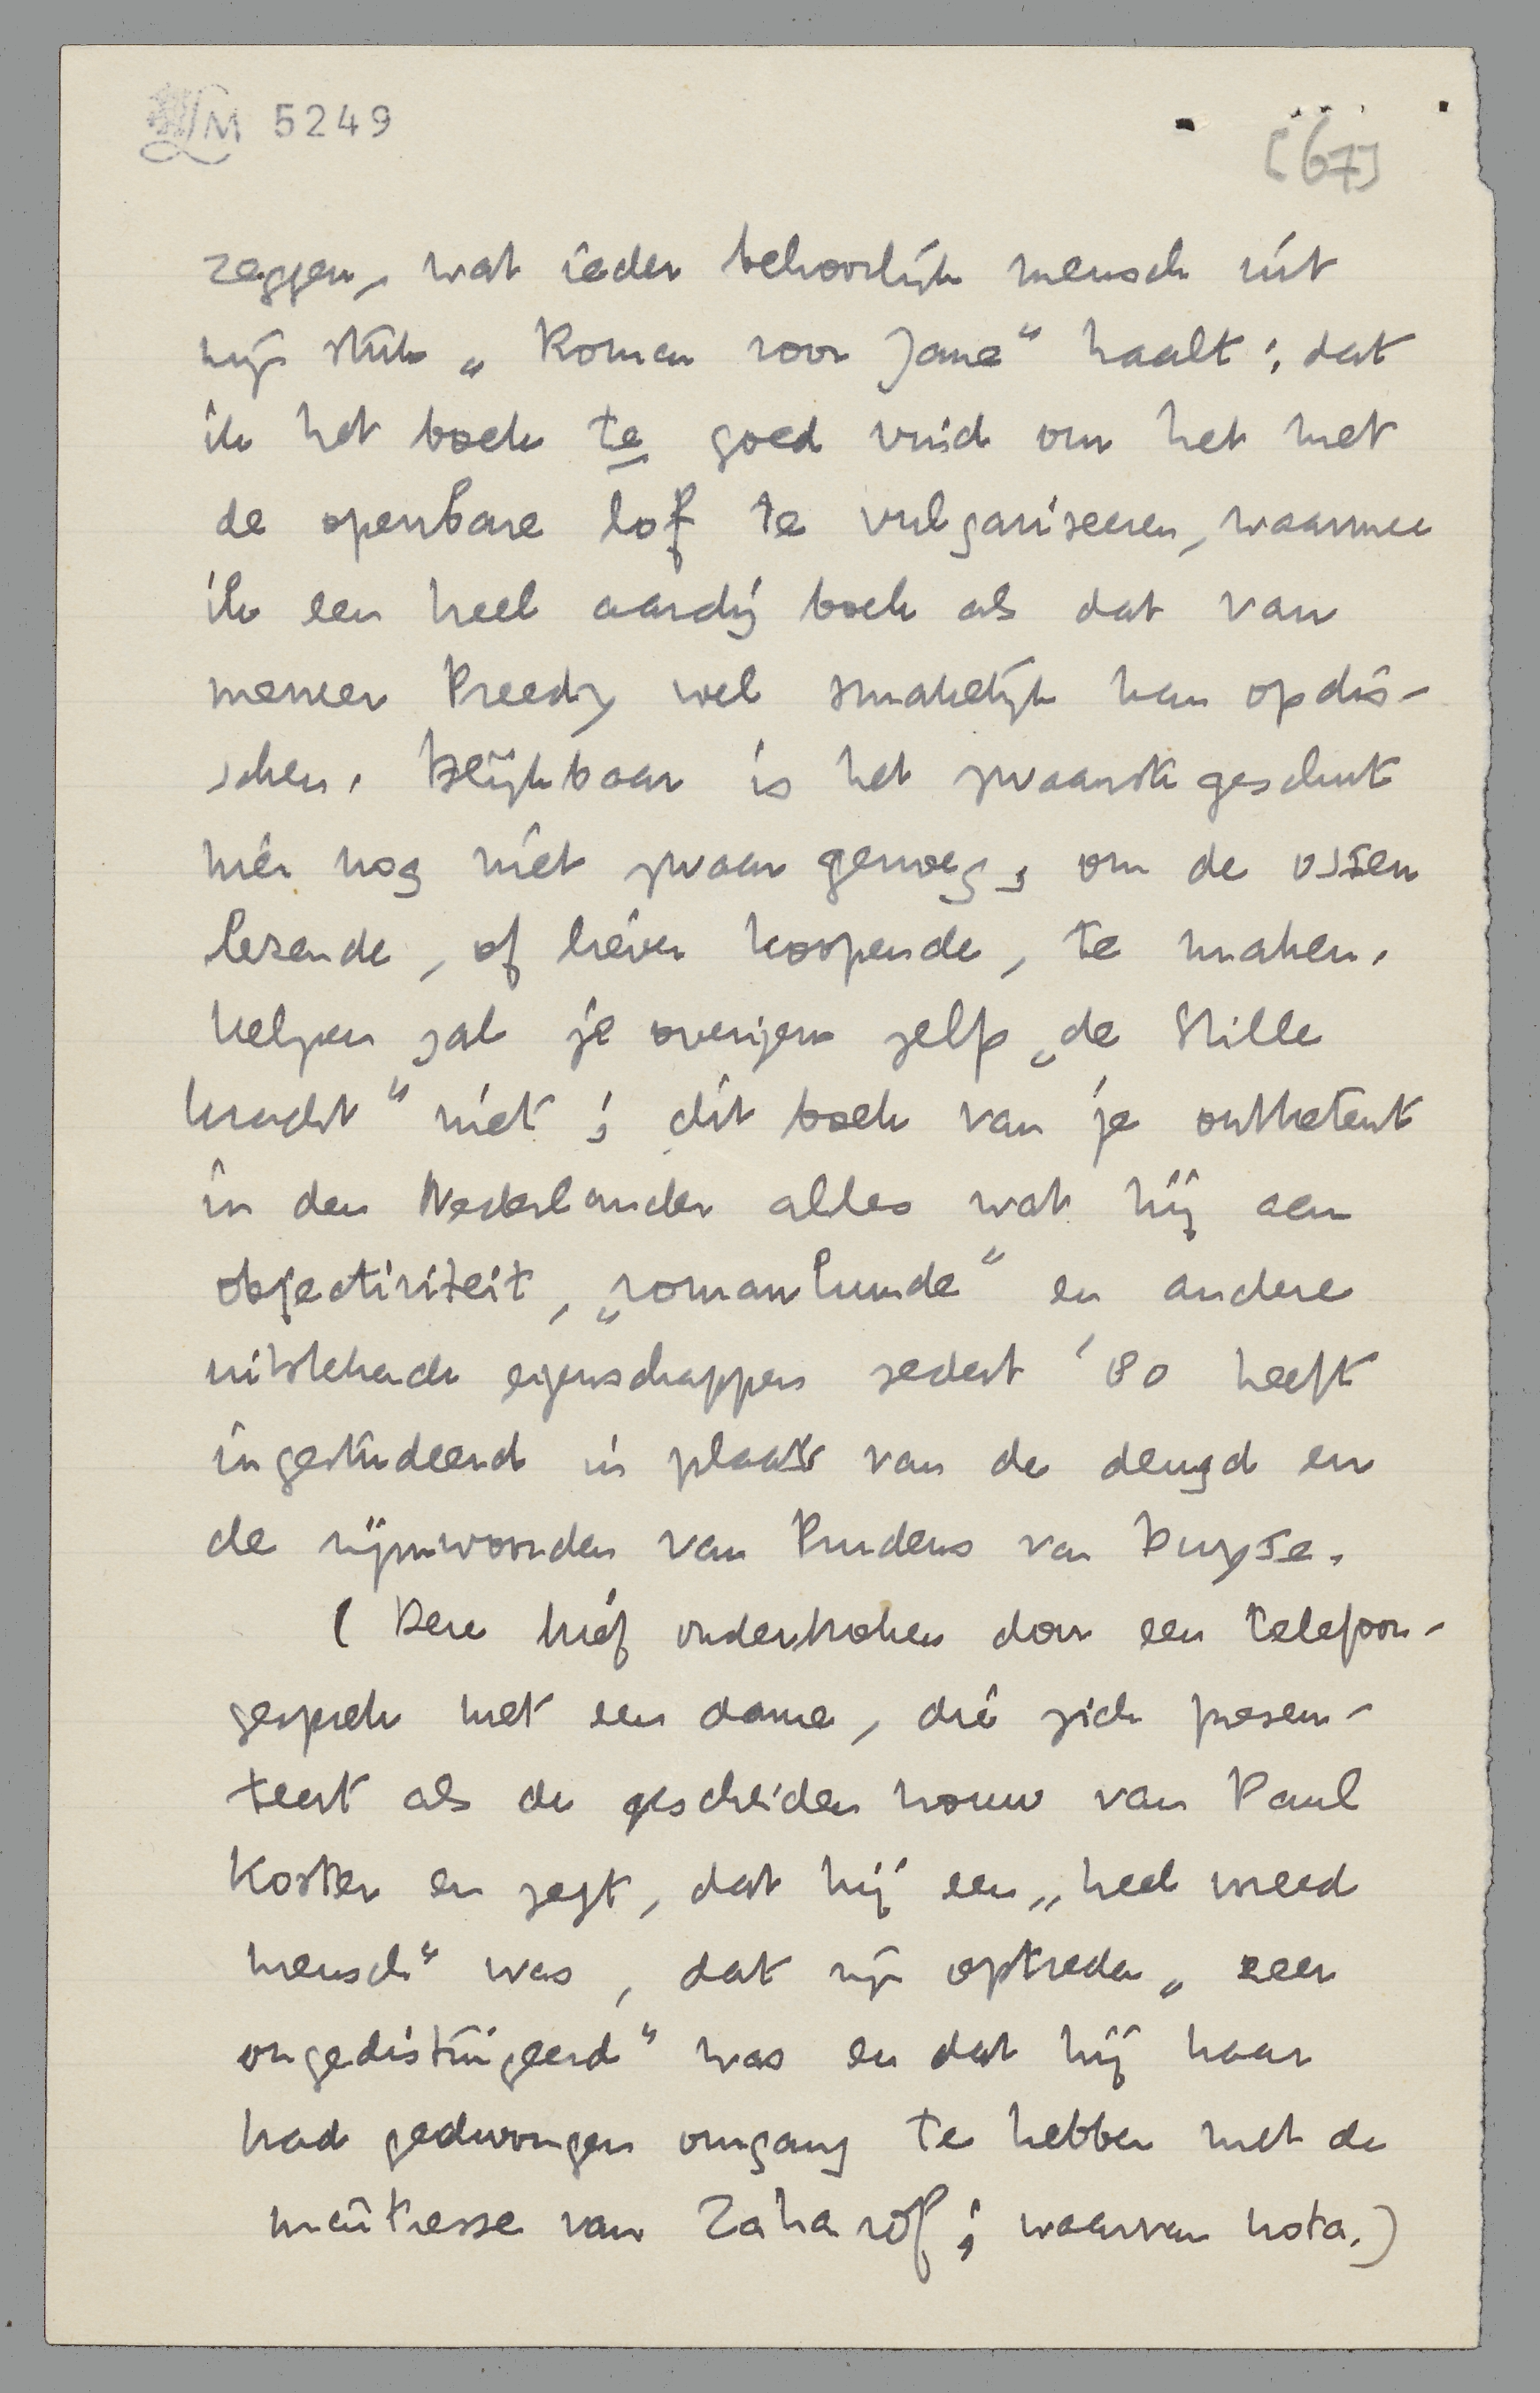 LM 5249
[67]
zeggen, wat ieder behoorlijk mensch uit
mijn stuk „Roman voor Jane" haalt: dat
ik het boek te goed vind om het met
de openbare lof te vulgariseeren, waarmee
ik een heel aardig boek als dat van
meneer Preedy wel smakelijk kan opdis-
schen. Blijkbaar is het zwaarste geschut
hier nog niet zwaar genoeg, om de ossen
lezende, of liever koopende, te maken.
Helpen zal je overigens zelfs „de Stille
kracht" niet; dit boek van je ontketent
in den Nederlander alles wat hij aan
objectiviteit, „romankunde" en andere
uitstekende eigenschappen sedert '80 heeft
ingestudeerd in plaats van de deugd en
de rijmwoorden van Prudens van Duyse.
(Deze brief onderbroken door een telefoon-
gesprek met een dame, die zich presen-
teert als de gescheiden vrouw van Paul
Koster en zegt, dat hij een „heel wreed
mensch" was, dat zijn optreden „zeer
ongedistingeerd" was en dat hij haar
had gedwongen omgang te hebben met de
maîtresse van Zaharoff; waarvan nota.)